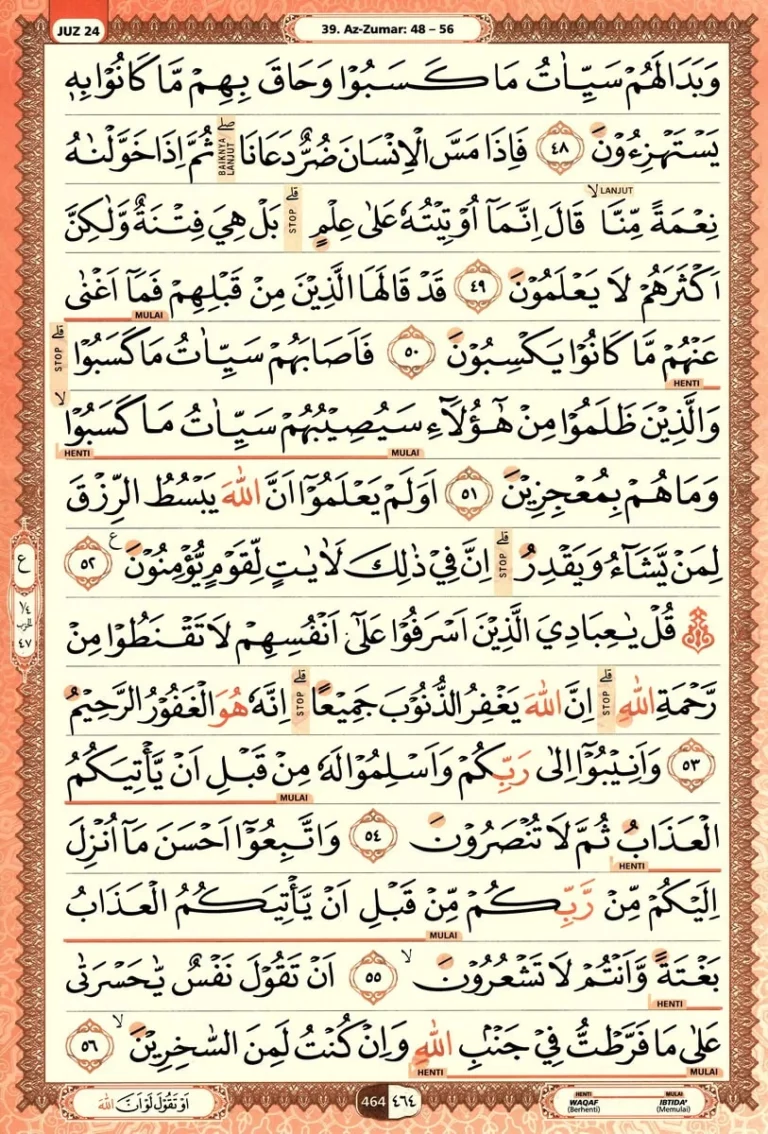 JUZ 24
39. Az-Zumar: 48 – 56
وَبَدَا لَهُمْ سَيِّاٰتُ مَا كَسَبُوْا وَحَاقَ بِهِمْ مَّا كَانُوْا بِهٖ
يَسْتَهْزِءُوْنَ ٤٨ فَاِذَا مَسَّ الْاِنْسَانَ ضُرٌّ دَعَانَاۖ BAIKNYA LANJUT ثُمَّ اِذَا خَوَّلْنٰهُ
نِعْمَةً مِّنَّاۙ LANJUT قَالَ اِنَّمَآ اُوْتِيْتُهٗ عَلٰى عِلْمٍۗ STOP بَلْ هِيَ فِتْنَةٌ وَّلٰكِنَّ
اَكْثَرَهُمْ لَا يَعْلَمُوْنَ ٤٩ قَدْ قَالَهَا الَّذِيْنَ مِنْ قَبْلِهِمْ فَمَآ اَغْنٰى
MULAI
عَنْهُمْ مَّا كَانُوْا يَكْسِبُوْنَ ٥٠ فَاَصَابَهُمْ سَيِّاٰتُ مَا كَسَبُوْاۗ STOP
HENTI
وَالَّذِيْنَ ظَلَمُوْا مِنْ هٰٓؤُلَاۤءِ سَيُصِيْبُهُمْ سَيِّاٰتُ مَا كَسَبُوْاۙ
MULAI HENTI
وَمَا هُمْ بِمُعْجِزِيْنَ ٥١ اَوَلَمْ يَعْلَمُوْٓا اَنَّ اللّٰهَ يَبْسُطُ الرِّزْقَ
لِمَنْ يَّشَاۤءُ وَيَقْدِرُۗ STOP اِنَّ فِيْ ذٰلِكَ لَاٰيٰتٍ لِّقَوْمٍ يُّؤْمِنُوْنَ ࣖ ٥٢
ع
١/٤
الحزب
٤٧
۞ قُلْ يٰعِبَادِيَ الَّذِيْنَ اَسْرَفُوْا عَلٰٓى اَنْفُسِهِمْ لَا تَقْنَطُوْا مِنْ
رَّحْمَةِ اللّٰهِۗ STOP اِنَّ اللّٰهَ يَغْفِرُ الذُّنُوْبَ جَمِيْعًاۗ STOP اِنَّهٗ هُوَ الْغَفُوْرُ الرَّحِيْمُ
٥٣ وَاَنِيْبُوْٓا اِلٰى رَبِّكُمْ وَاَسْلِمُوْا لَهٗ مِنْ قَبْلِ اَنْ يَّأْتِيَكُمُ
MULAI
الْعَذَابُ ثُمَّ لَا تُنْصَرُوْنَ ٥٤ وَاتَّبِعُوْٓا اَحْسَنَ مَآ اُنْزِلَ
HENTI
اِلَيْكُمْ مِّنْ رَّبِّكُمْ مِّنْ قَبْلِ اَنْ يَّأْتِيَكُمُ الْعَذَابُ
MULAI
بَغْتَةً وَّاَنْتُمْ لَا تَشْعُرُوْنَۙ ٥٥ اَنْ تَقُوْلَ نَفْسٌ يّٰحَسْرَتٰى
HENTI
عَلٰى مَا فَرَّطْتُّ فِيْ جَنْۢبِ اللّٰهِ وَاِنْ كُنْتُ لَمِنَ السّٰخِرِيْنَۙ ٥٦
HENTI MULAI
اَوْ تَقُوْلَ لَوْ اَنَّ اللّٰهَ
464 ٤٦٤
HENTI WAQAF (Berhenti) MULAI IBTIDA' (Memulai)